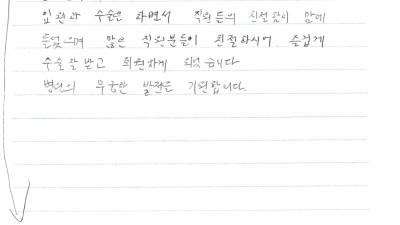 입원과 수술을 하면서 직원들의 친절함이 맘에
들었으며 많은 직원분들이 친절하시어 즐겁게
수술 잘 받고 퇴원하게 되었습니다
병원의 무궁한 발전을 기원합니다.